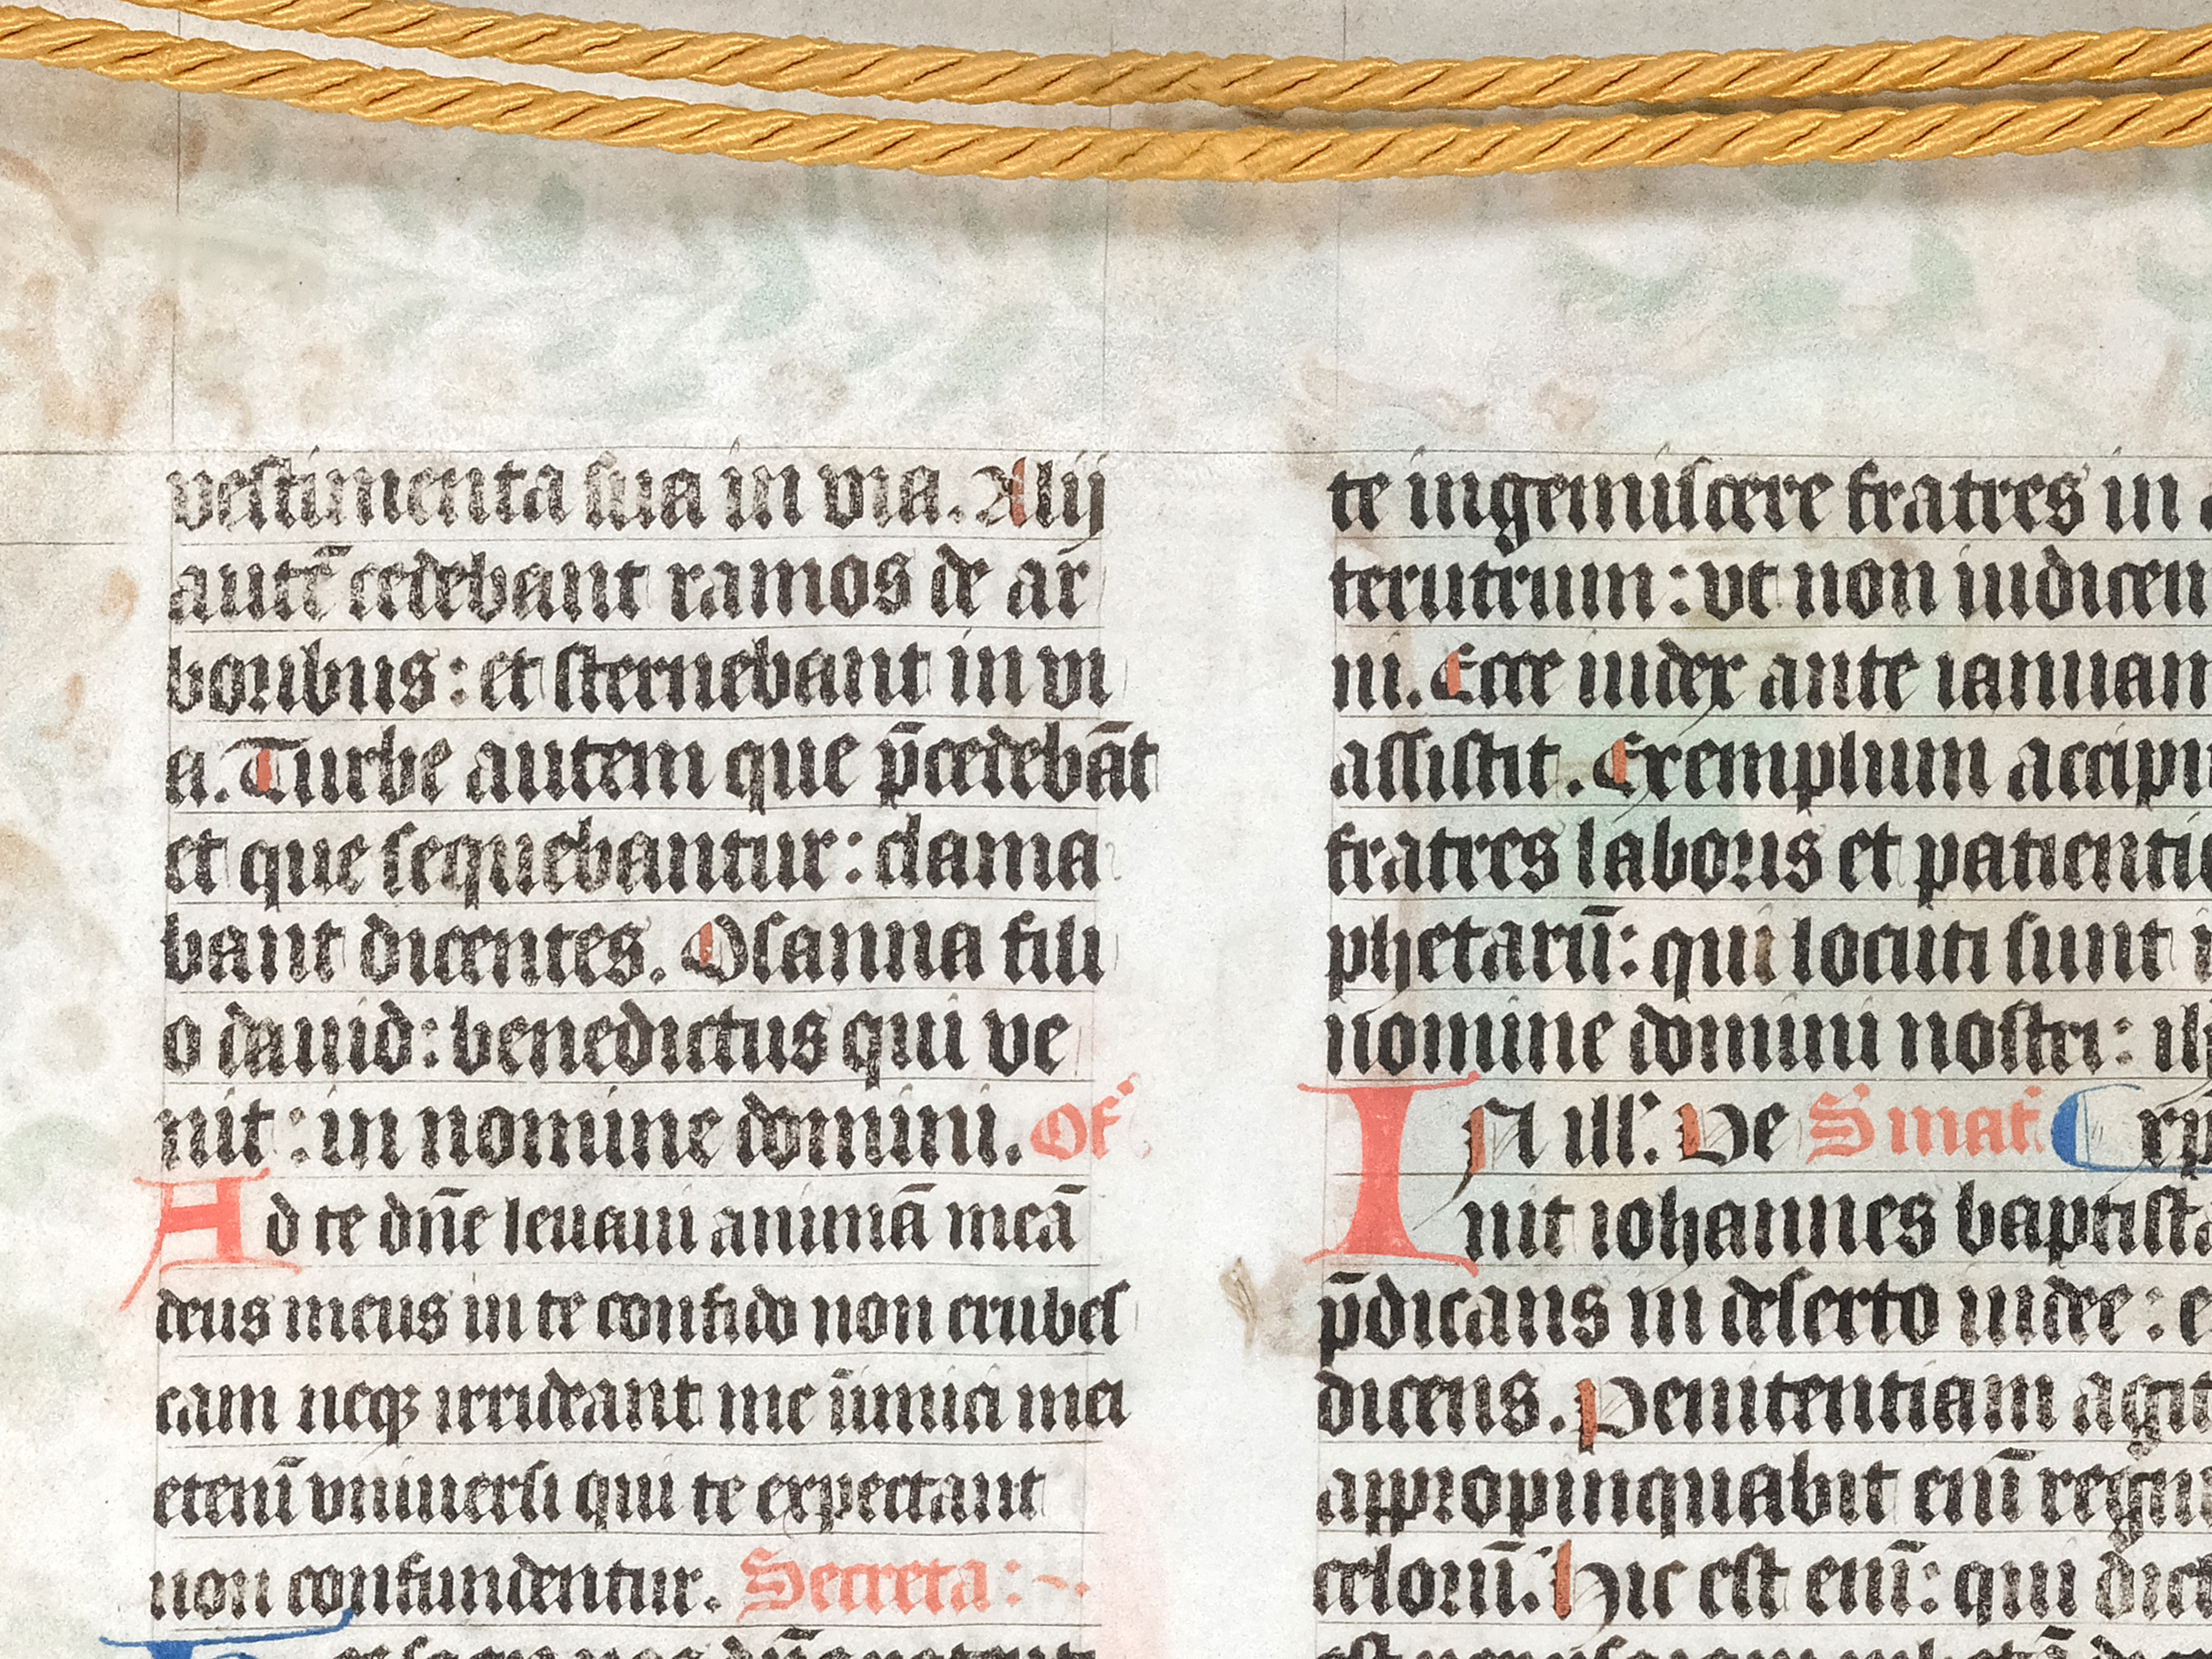 vestimenta sua in via. Alij
autē cedebant ramos de ar
boribus: et sternebant in vi
a. Turbe autem que p̄cedebāt
et que sequebantur: clama
bant dicentes. Osanna fili
o dauid: benedictus qui ve
nit: in nomine domini. Of
Ad te dn̄e leuaui animā meā
deus meus in te confido non erubes
cam neqꝫ irrideant me īimici mei
etenī vniuersi qui te expectant
non confundentur. Secreta:
te ingemiscere fratres in
terutrum: vt non iudicen
ni. Ecce iudex ante ianuam
assistit. Exemplum accipi
fratres laboris et patienti
phetarū: qui locuti sunt
nomine domini nostri: ih
IN ill'. De S mat
nit iohannes baptista
p̄dicans in deserto iudee:
dicens. Penitentiam agit
appropinquabit enī regnu
celorū. Hic est enī: qui dict